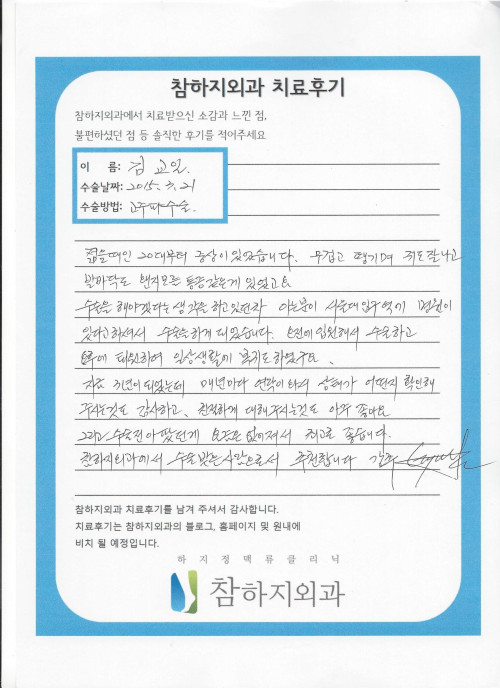 참하지외과 치료후기
참하지외과에서 치료받으신 소감과 느낀 점,
불편하셨던 점 등 솔직한 후기를 적어주세요
이 름: 김 교일
수술날짜: 2015. 3. 21
수술방법: 고주파수술
젊을때인 20대부터 증상이 있었습니다. 무겁고 땡기며 쥐도 잘나고
발바닥도 왠지모른 통증같은게 있었고요
수술을 해야겠다는 생각을 하고있던차 아는분이 서울대입구역에 병원이
있다고하셔서 수술을하게 되었습니다. 오전에 입원해서 수술하고
오후에 퇴원하여 일상생활에 복귀도 하였구요.
지금 3년이 되었는데 매년마다 연락이 와서 상태가 어떤지 확인해
주시는것도 감사하고, 친절하게 대해주시는것도 아주 좋아요
그리고 수술전 아팠던게 모두 없어져서 최고로 좋습니다.
참하지외과에서 수술받은사람으로서 추천합니다
참하지외과 치료후기를 남겨 주셔서 감사합니다.
치료후기는 참하지외과의 블로그, 홈페이지 및 원내에
비치 될 예정입니다.
하지정맥류클리닉
참하지외과